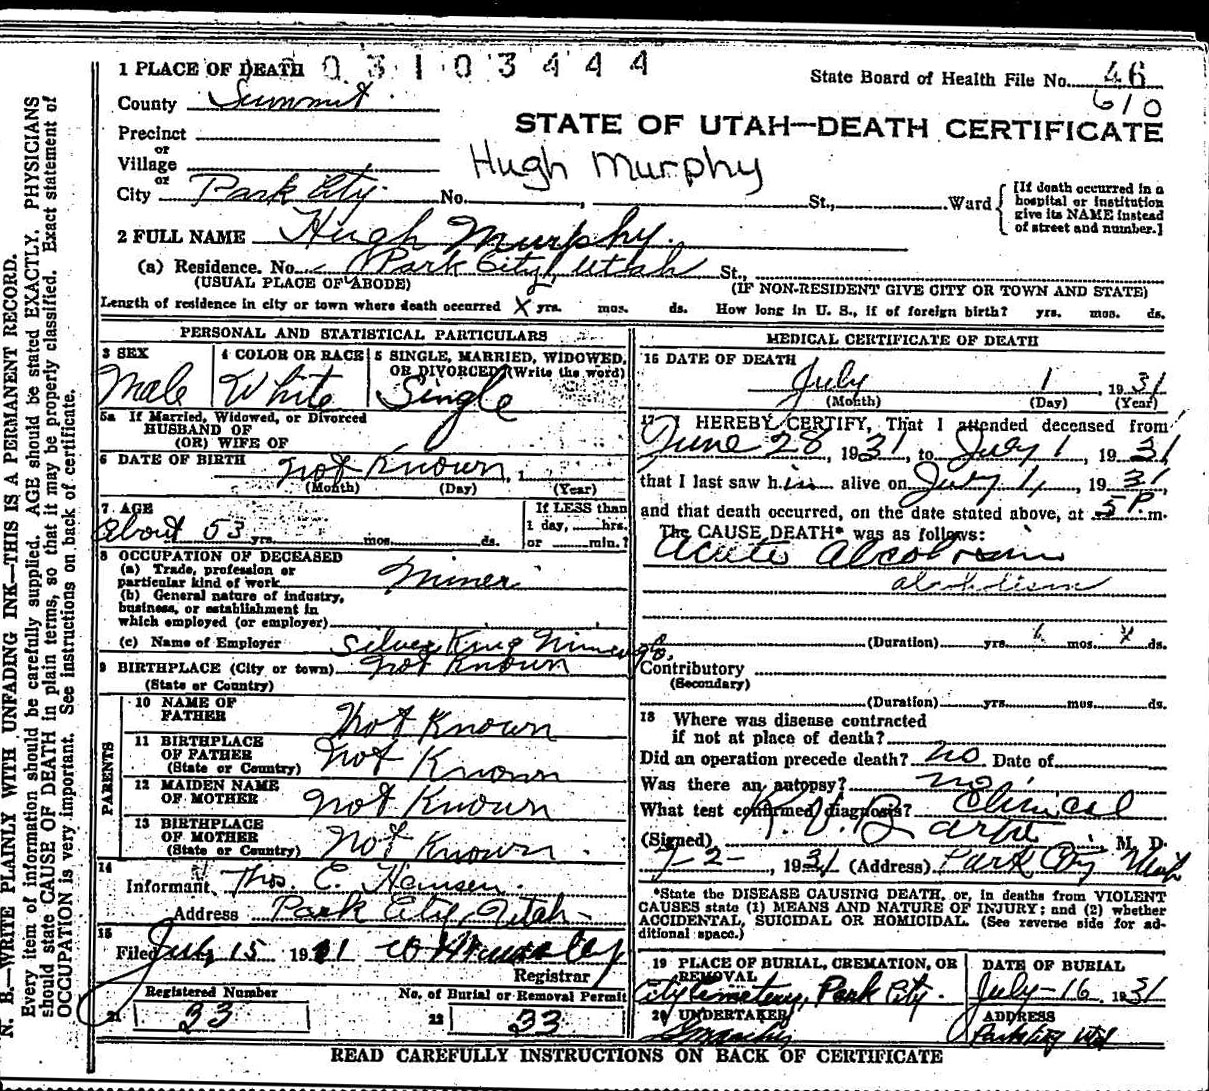 0 3 1 0 3 4 4 4
1 PLACE OF DEATH
State Board of Health File No. 46
610
County Summit
STATE OF UTAH—DEATH CERTIFICATE
Precinct
or
Village
Hugh Murphy
or
City Park City. No. , St., Ward
[If death occurred in a
hospital or institution
give its NAME instead
of street and number.]
2 FULL NAME Hugh Murphy.
(a) Residence. No. Park City, Utah St.,
(USUAL PLACE OF ABODE) (IF NON-RESIDENT GIVE CITY OR TOWN AND STATE)
Length of residence in city or town where death occurred X yrs. mos. ds. How long in U. S., if of foreign birth? yrs. mos. ds.
PERSONAL AND STATISTICAL PARTICULARS
3 SEX
Male
4 COLOR OR RACE
White
5 SINGLE, MARRIED, WIDOWED,
OR DIVORCED (Write the word)
Single
5a If Married, Widowed, or Divorced
HUSBAND OF
(OR) WIFE OF
6 DATE OF BIRTH not Known, 1
(Month) (Day) (Year)
7 AGE
About 53 yrs. mos. ds.
If LESS than
1 day, hrs.
or min.?
8 OCCUPATION OF DECEASED
(a) Trade, profession or
particular kind of work Miner
(b) General nature of industry,
business, or establishment in
which employed (or employer)
(c) Name of Employer Silver King Mines Co.
9 BIRTHPLACE (City or town) not Known
(State or Country)
PARENTS
10 NAME OF
FATHER Not Known
11 BIRTHPLACE
OF FATHER
(State or Country) Not Known
12 MAIDEN NAME
OF MOTHER Not Known
13 BIRTHPLACE
OF MOTHER
(State or Country) Not Known.
14
Informant Thos. E. Hansen.
Address Park City, Utah
15
Filed July 15 1931
Registrar
Registered Number
21 33
No. of Burial or Removal Permit
22 33
MEDICAL CERTIFICATE OF DEATH
16 DATE OF DEATH
July 1, 1931
(Month) (Day) (Year)
17 I HEREBY CERTIFY, That I attended deceased from
June 28, 1931, to July 1, 1931
that I last saw him alive on July 1, 1931
and that death occurred, on the date stated above, at 5 P. m.
The CAUSE DEATH* was as follows:
Acute Alcoholism
alcoholism
(Duration) yrs. mos. ds.
Contributory
(Secondary)
(Duration) yrs. mos. ds.
18 Where was disease contracted
if not at place of death?
Did an operation precede death? no Date of
Was there an autopsy? no
What test confirmed diagnosis? Clinical
(Signed) M. D.
7-2-, 1931 (Address) Park City Utah
*State the DISEASE CAUSING DEATH, or, in deaths from VIOLENT
CAUSES state (1) MEANS AND NATURE OF INJURY; and (2) whether
ACCIDENTAL, SUICIDAL OR HOMICIDAL. (See reverse side for ad-
ditional space.)
19 PLACE OF BURIAL, CREMATION, OR
REMOVAL
City Cemetery, Park City.
DATE OF BURIAL
July-16, 1931
20 UNDERTAKER
ADDRESS
Park City Utah
READ CAREFULLY INSTRUCTIONS ON BACK OF CERTIFICATE
N. B.—WRITE PLAINLY WITH UNFADING INK—THIS IS A PERMANENT RECORD.
Every item of information should be carefully supplied. AGE should be stated EXACTLY. PHYSICIANS
should state CAUSE OF DEATH in plain terms, so that it may be properly classified. Exact statement of
OCCUPATION is very important. See instructions on back of certificate.